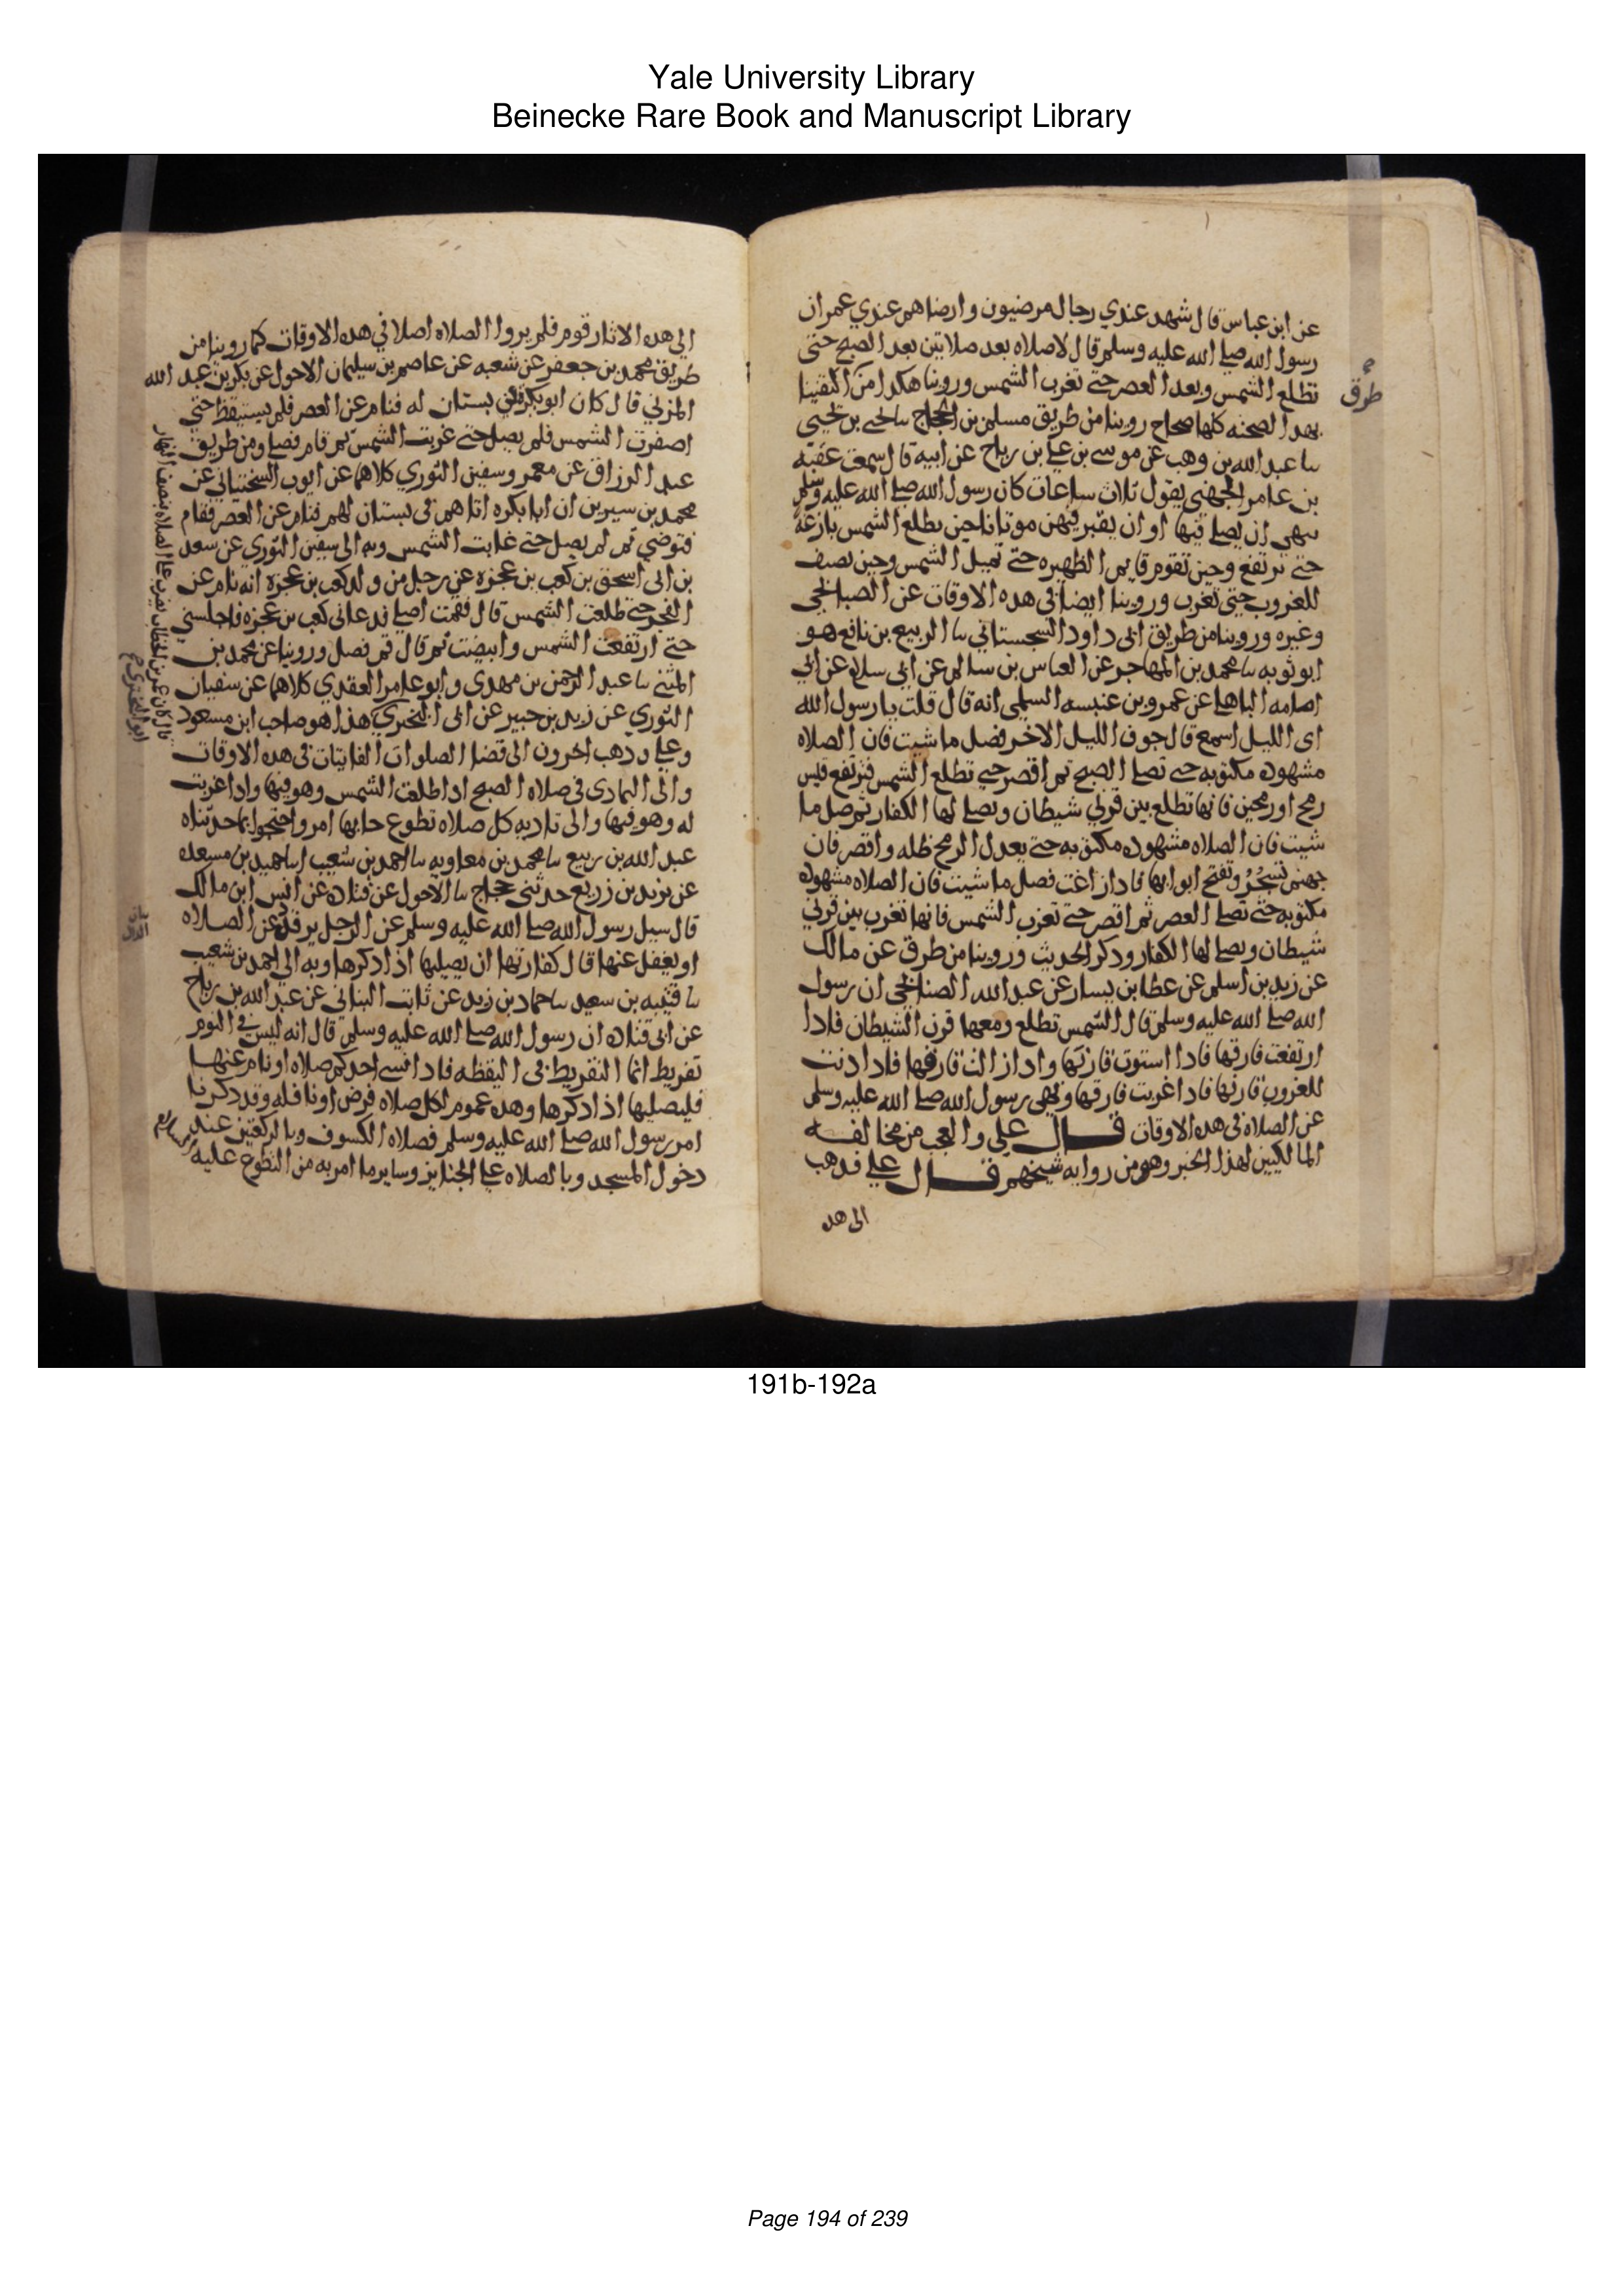 Yale University Library
Beinecke Rare Book and Manuscript Library
عن ابن عباس قال شهد عندي رجال مرضيون وارضاهم عندي عمر ان
رسول الله صلى الله عليه وسلم قال لاصلاه بعد صلاتين بعد الصبح حتى
تطلع الشمس وبعد العصر حتى تغرب الشمس وروينا هكذا من
طرق
بهذا كلها صحاح روينا من طريق مسلم بن الحجاج نا يحيى بن يحيى
نا عبد الله بن وهب عن موسى بن علي بن رباح عن ابيه قال سمعت عقبه
بن عامر الجهني يقول ثلاث ساعات كان رسول الله صلى الله عليه وسلم
ينهى ان يصلي فيها او ان يقبر فيهن موتانا حين تطلع الشمس بازغه
حتى ترتفع وحين تقوم قايم الظهيره حتى تميل الشمس وحين تضيف
للغروب حتى تغرب وروينا ايضا في هذه الاوقات عن الصنابحي
وغيره وروينا من طريق ابي داود السجستاني نا الربيع بن نافع هو
ابو توبه نا محمد بن المهاجر عن العباس بن سالم عن ابي سلام عن ابي
امامه الباهلي عن عمرو بن عنبسه السلمي انه قال قلت يا رسول الله
اي الليل اسمع قال جوف الليل الاخر فصل ما شيت فان الصلاه
مشهوده مكتوبه حتى تصلي الصبح ثم اقصر حتى تطلع الشمس فترتفع قيس
رمح او رمحين فانها تطلع بين قرني شيطان ويصلي لها الكفار ثم صل ما
شيت فان الصلاه مشهوده مكتوبه حتى يعدل الرمح ظله واقصر فان
جهنم تسجر وتفتح ابوابها فاذا زاغت فصل ما شيت فان الصلاه مشهوده
مكتوبه حتى تصلي العصر ثم اقصر حتى تغرب الشمس فانها تغرب بين قرني
شيطان ويصلي لها الكفار وذكر الحديث وروينا من طرق عن مالك
عن زيد بن اسلم عن عطا بن يسار عن عبد الله الصنابحي ان رسول
الله صلى الله عليه وسلم قال الشمس تطلع ومعها قرن الشيطان فاذا
ارتفعت فارقها فاذا استوت قارنها واذا زالت فارقها فاذا دنت
للغروب قارنها فاذا غربت فارقها ونهى رسول الله صلى الله عليه وسلم
عن الصلاه في هذه الاوقات قال علي والعجب من مخالفه
المالكيين لهذا الخبر وهو من روايه شيخهم قال علي فذهب
الى هذ
الى هذه الاثار قوم فلم يروا الصلاه اصلا في هذه الاوقات كما روينا من
طريق محمد بن جعفر عن شعبه عن عاصم بن سليمان الاحول عن بكر بن عبد الله
المزني قال كان ابو بكره في بستان له فنام عن العصر فلم يستيقظ حتى
اصفرت الشمس فلم يصل حتى غربت الشمس ثم قام فصلى ومن طريق
عبد الرزاق عن معمر وسفين الثوري كلاهما عن ايوب السختياني عن
محمد بن سيرين ان ابا بكره اتاهم في بستان لهم فنام عن العصر فقام
فتوضي ثم لم يصل حتى غابت الشمس وبه الى سفين الثوري عن سعد
بن ابي اسحق بن كعب بن عجره عن رجل من ولد كعب بن عجره انه نام عن
الفجر حتى طلعت الشمس قال فقمت اصلي فدعاني كعب بن عجره فاجلسني
حتى ارتفعت الشمس وابيضت ثم قال قم فصل وروينا عن محمد بن
المثنى نا عبد الرحمن بن مهدي وابو عامر العقدي كلاهما عن سفيان
الثوري عن زيد بن جبير عن ابي البختري هذا هو صاحب ابن مسعود
وعلي وذهب اخرون الى قضا الصلوات الفايتات في هذه الاوقات
والى التمادي في صلاه الصبح اذا طلعت الشمس وهو فيها واذا غربت
له وهو فيها والى تاديه كل صلاه تطوع جا بها امر واحتجوا بما حدثناه
عبد الله بن ربيع نا محمد بن معاويه نا احمد بن شعيب انا حميد بن مسعده
عن يزيد بن زريع حدثني حجاج نا الاحول عن قتاده عن انس ابن مالك
قال سيل رسول الله صلى الله عليه وسلم عن الرجل يرقد عن الصلاه
او يغفل عنها قال كفارتها ان يصليها اذا ذكرها وبه الى احمد بن شعيب
نا قتيبه بن سعيد نا حماد بن زيد عن ثابت البناني عن عبد الله بن رباح
عن ابي قتاده ان رسول الله صلى الله عليه وسلم قال انه ليس في النوم
تفريط انما التفريط في اليقظه فاذا نسي احدكم صلاه او نام عنها
فليصليها اذا ذكرها وهذه عموم لكل صلاه فرض او نافله وقد ذكرنا
امر رسول الله صلى الله عليه وسلم فصلاه الكسوف وبالركعتين عند
دخول المسجد وبالصلاه على الجنايز وساير ما امر به من التطوع عليه السلام
قال كان عمر بن الخطاب يضرب على الصلاه بنصف النهار
ابو البختري
191b-192a
Page 194 of 239